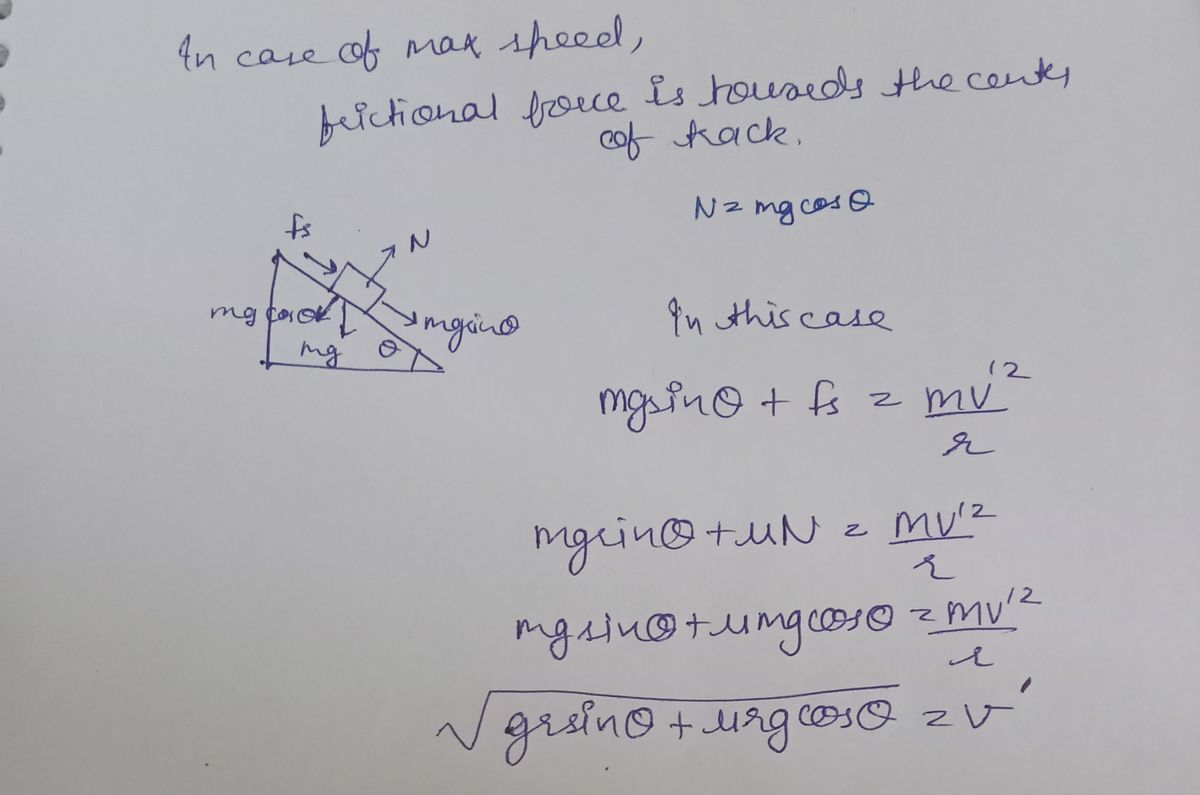 In case of max speed,
frictional force is towards the center
of track.
N = mg cos θ
fs
N
mg cos θ
mg sin θ
mg
θ
In this case
mg sin θ + fs = mv'²/r
mg sin θ + μN = mv'²/r
mg sin θ + μmg cos θ = mv'²/r
√gr sin θ + μrg cos θ = v'